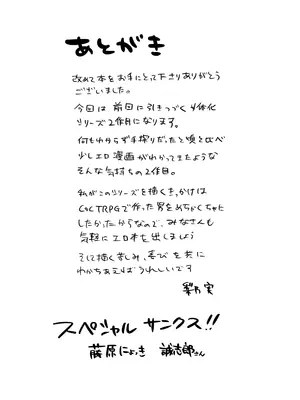 あとがき
改めて本をお手にとって下さりありがとう
ございました。
今回は前回に引きつづく
シリーズ2作目になります。
何もわからず手探りだった頃と比べ
少しエロ漫画がわかってきたような
そんな気持ちの2作目。
私がこのシリーズを描くきっかけは
CoC TRPGで作った男をめちゃくちゃに
したかったからなので、みなさんも
気軽にエロ本を出しましょう
そして描く苦しみ、喜びを共に
わかちあえればうれしいです
スペシャル サンクス!!
藤原にょっき 誠志郎さん